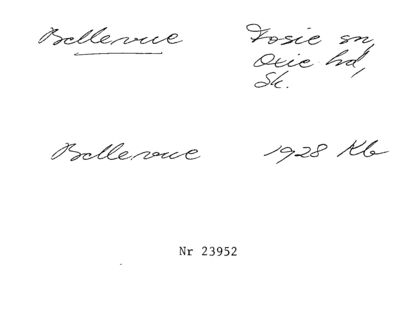 Bellevue Fosie sn,
Oxie hd,
Sk.
Bellevue 1928 Kb
Nr 23952